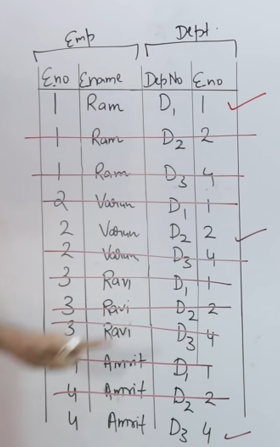 Emp Dept.
Eno Ename DepNo Eno
1 Ram D1 1
1 Ram D2 2
1 Ram D3 4
2 Varun D1 1
2 Varun D2 2
2 Varun D3 4
3 Ravi D1 1
3 Ravi D2 2
3 Ravi D3 4
Amrit D1 1
4 Amrit D2 2
4 Amrit D3 4